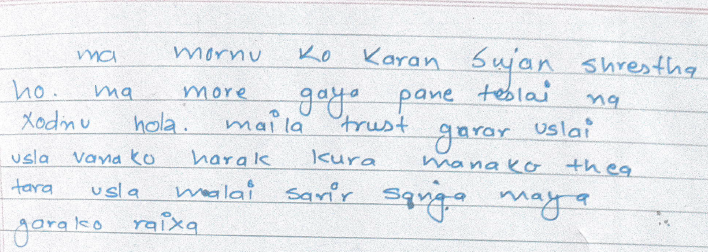 ma mornu ko karan Sujan shrestha
ho. ma more gaya pane teslai na
xodnu hola. maila trust garar uslai
usla vanako harak kura manako thea
tara usla malai sarir sanga maya
garako raixa